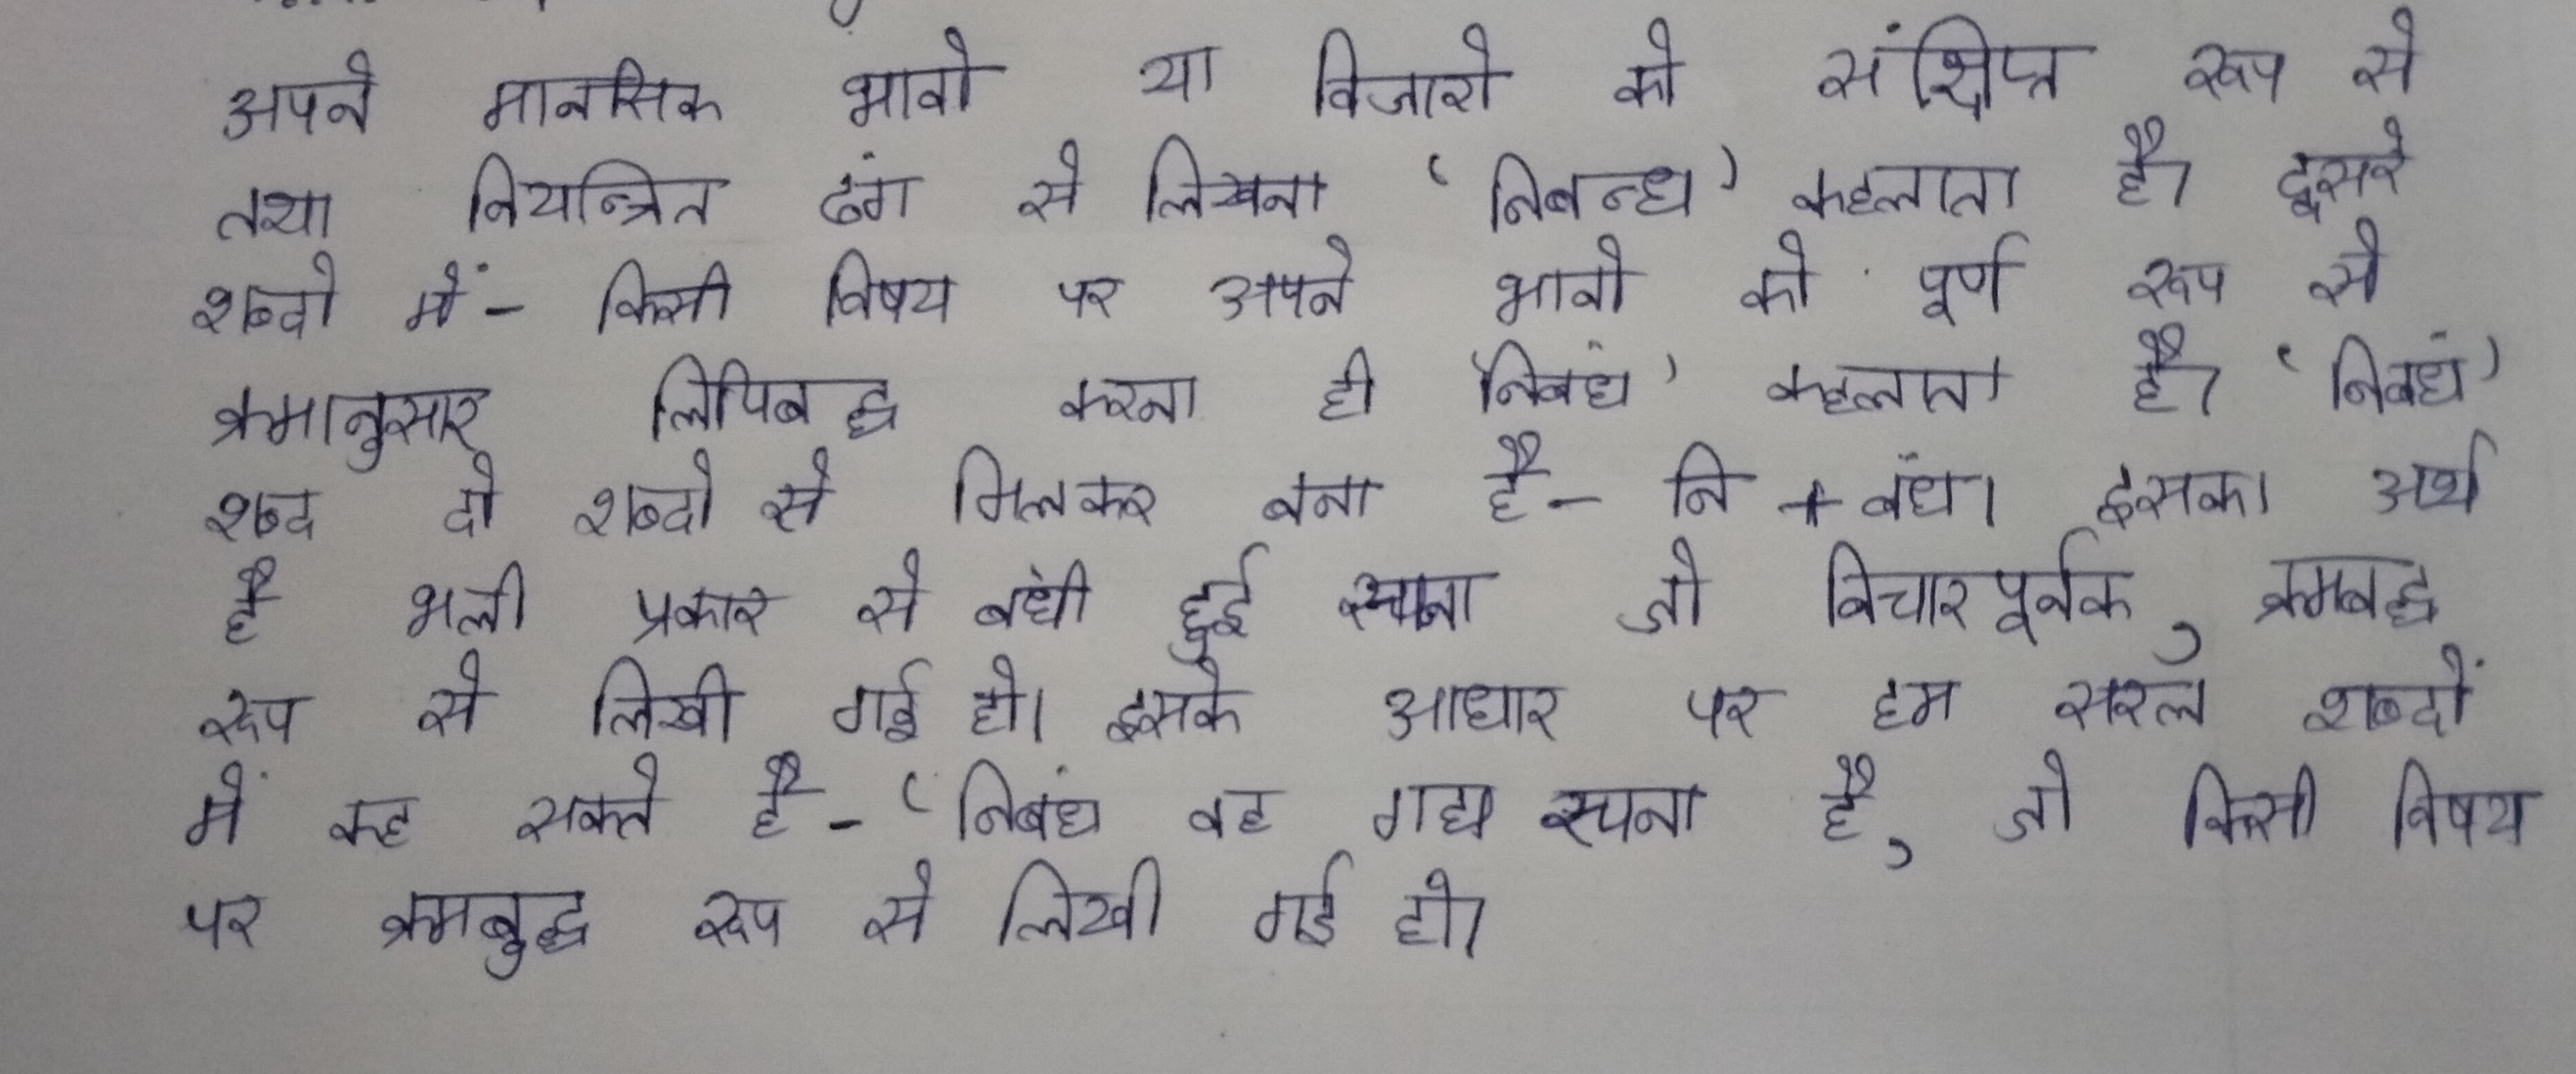 अपने मानसिक भावो या विजारो को संक्षिप्त रूप से
तथा नियन्त्रित ढंग से लिखना 'निबन्ध' कहलाता है। दूसरे
शब्दो में- किसी विषय पर अपने भावो को पूर्ण रूप से
क्रमानुसार लिपिबद्ध करना ही 'निबंध' कहलाता है। 'निबंध'
शब्द दो शब्दो से मिलकर बना है- नि + बंध। इसका अर्थ
है भली प्रकार से बंधी हुई रचना जो विचारपूर्वक, क्रमबद्ध
रूप से लिखी गई हो। इसके आधार पर हम सरल शब्दों
में कह सकते है- 'निबंध वह गद्य रचना है, जो किसी विषय
पर क्रमबुद्ध रूप से लिखी गई हो।